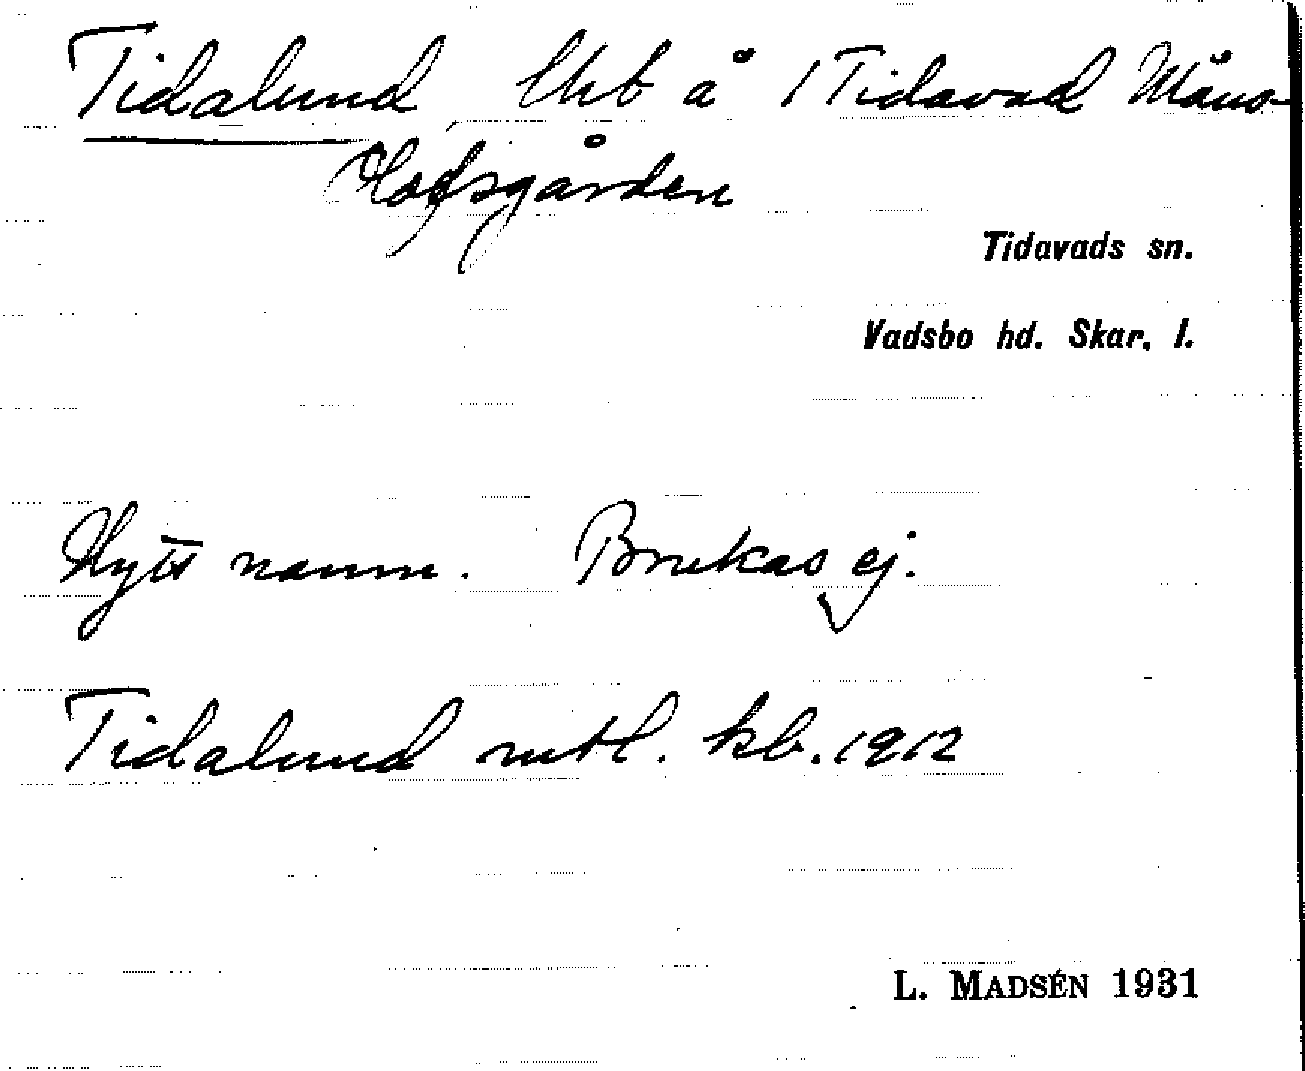 Tidalund, lht å 1 Tidavad Måns
Olofsgården
Tidavads sn.
Vadsbo hd. Skar. l.
Nytt namn. Brukas ej.
Tidalund mtl. kb. 1912
L. MADSÉN 1931